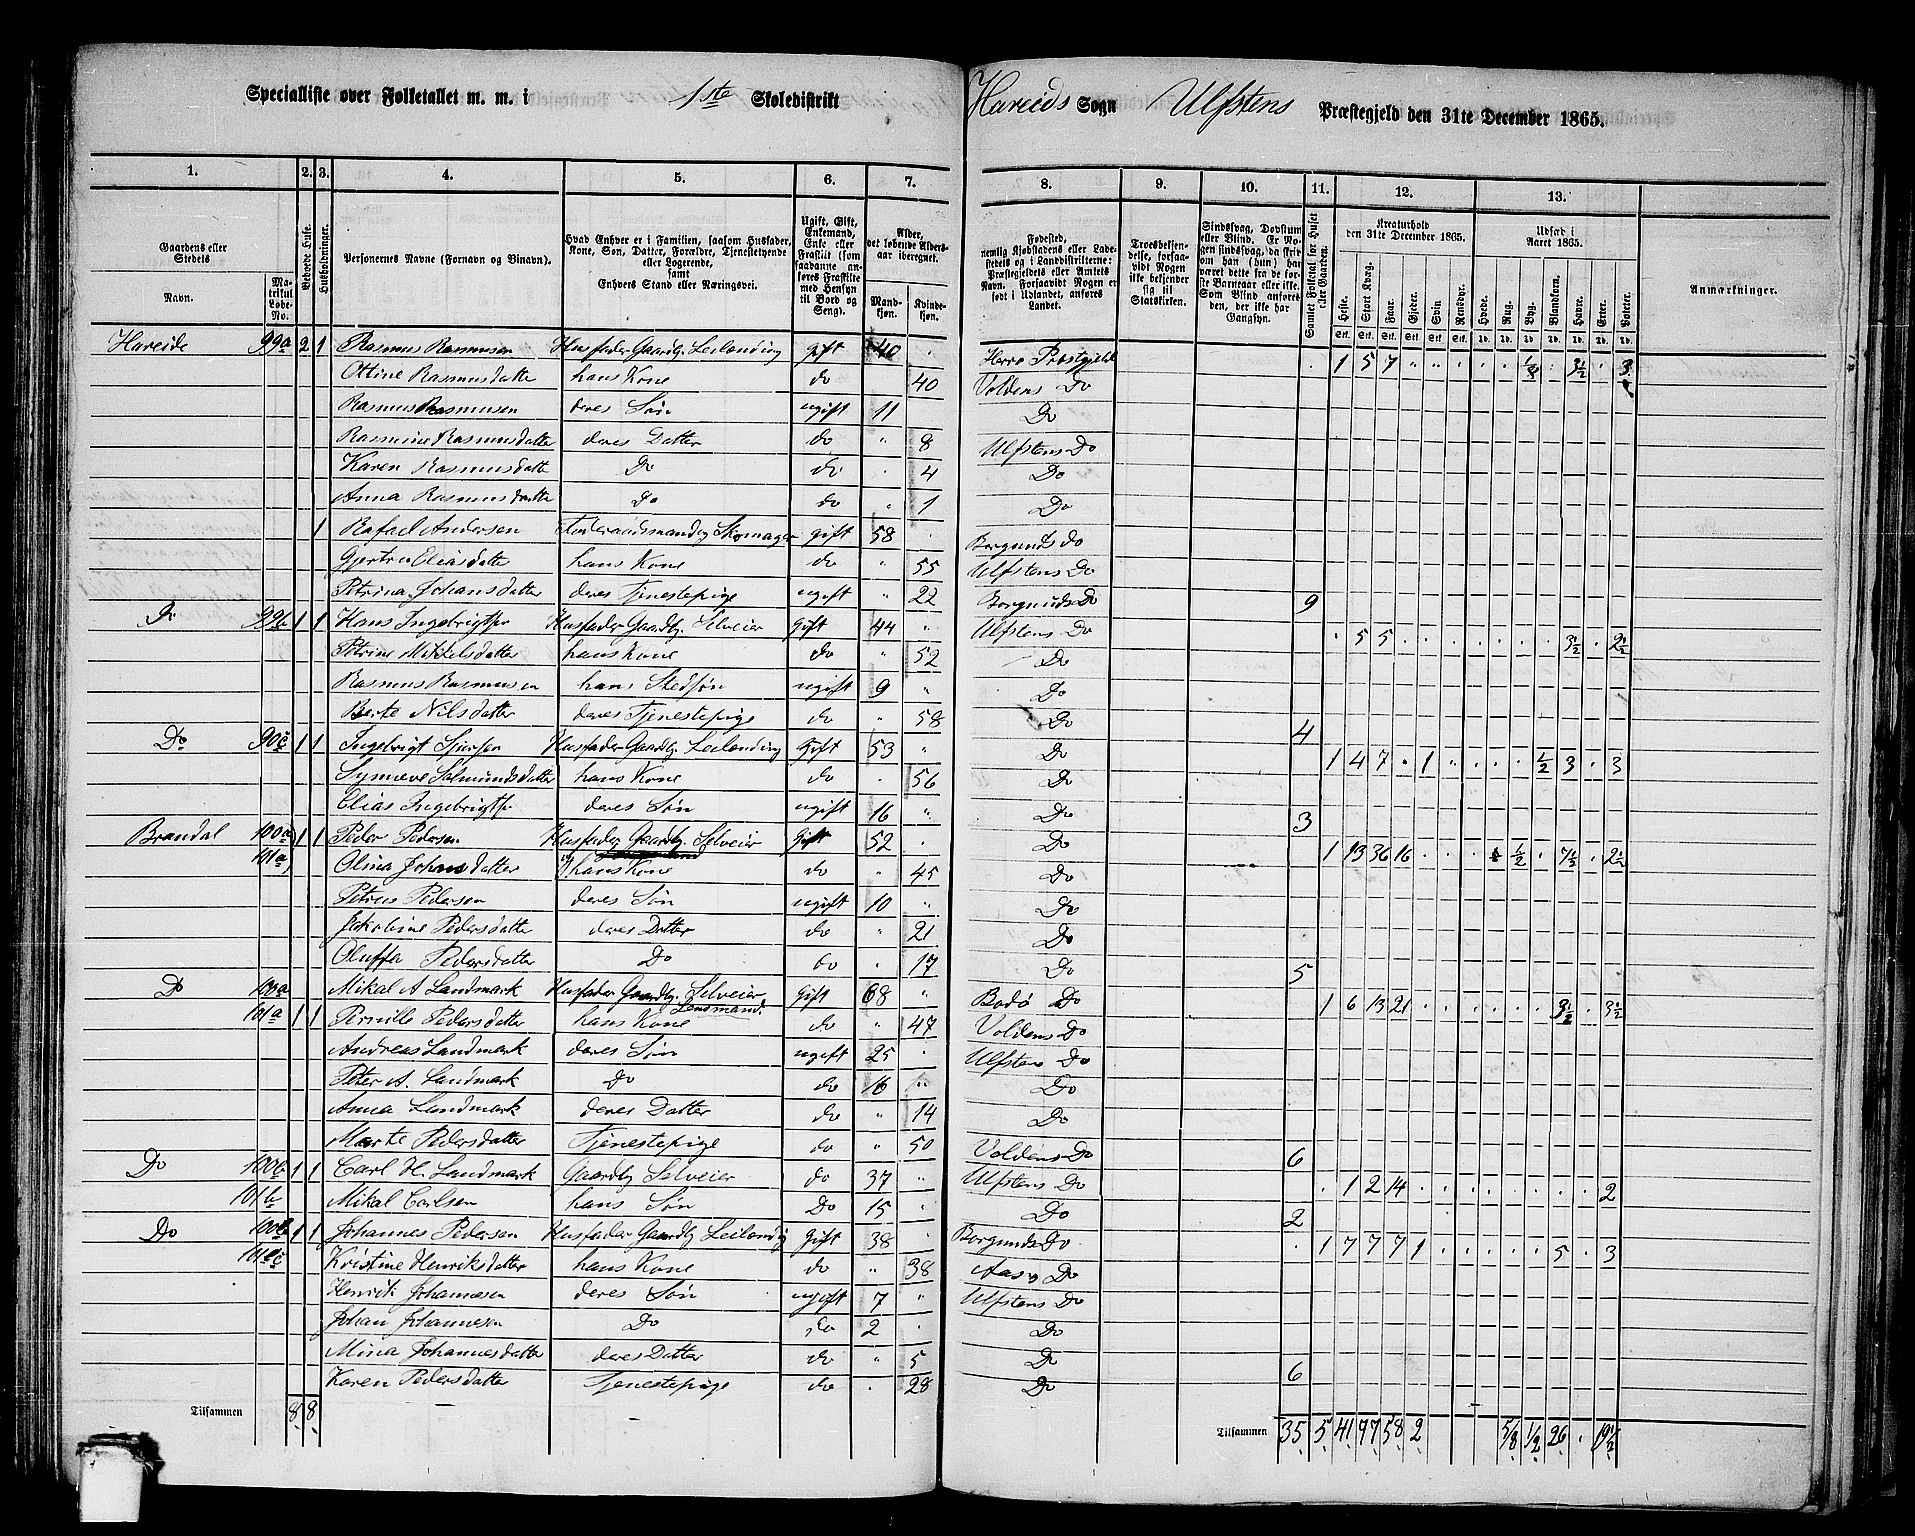 Specialliste over Folketallet m. m. i 1ste Skoledistrikt Hareids Sogn Ulfstens Præstegjeld den 31te December 1865.
1. 2. 3. 4. 5. 6. 7. 8. 9. 10. 11. 12. 13.
Gaardens eller Stedets
Navn. Matrikul Løbe-No.
Beboede Huse.
Husholdninger.
Personernes Navne (Fornavn og Binavn).
Hvad Enhver er i Familien, saasom Husfader, Kone, Søn, Datter, Forældre, Tjenestetyende eller Logerende, samt Enhvers Stand eller Næringsvei.
Ugift, Gift, Enkemand, Enke eller Fraskilt (som saadanne anføres Fraskilte med Hensyn til Bord og Seng).
Alder, det løbende Alders-aar iberegnet.
Mandkjøn. Kvindekjøn.
Fødested, nemlig Kjøbstadens eller Ladestedets og i Landdistrikterne: Præstegjeldets eller Amtets Navn. Forsaavidt Nogen er født i Udlandet, anføres Landet.
Troesbekjendelse, forsaavidt Nogen ikke bekjender sig til Statskirken.
Sindssvag, Døvstum eller Blind. Er Nogen sindssvag, da skrives om han (hun) har været dette fra de første Barneaar eller ikke. Som Blind anføres den, der ikke har Gangsyn.
Samlet Folketal for Huset eller Gaarden.
Kreaturhold den 31te December 1865.
Heste. Stort Kvæg. Faar. Gjeder. Svin. Rensdyr.
Udsæd i Aaret 1865.
Hvede. Rug. Byg. Blandkorn. Havre. Erter. Poteter.
Anmærkninger.
Hareide 99a 2 1 Rasmus Rasmusen Husfader Gaardb. Leilending gift 40 Herø Præstgjeld 1 5 7 1/8 3 1/2 3
Ottine Rasmusdatter hans Kone do 40 Voldens Do
Rasmus Rasmusen deres Søn ugift 11 Do
Rasmine Rasmusdatter deres Datter do 8 Ulfstens Do
Karen Rasmusdatte Do do 4 Do
Anna Rasmusdatte Do do 1 Do
1 Rafael Andersen Skomager gift 58 Borgunds Do
Gjertru Eliasdatter hans Kone do 55 Ulfstens Do
Petrina Johansdatter deres Tjenestepige ugift 22 Borgunds Do 9
Do 99b 1 1 Hans Ingebrigtsø Husfader Gaardb. Selveier Gift 44 Ulfstens Do 5 5 3 1/2 2 1/2
Petrine Mikkelsdatter hans Kone do 52 Do
Rasmus Rasmusen hans Stedsøn ugift 9 Do
Berte Nilsdatter deres Tjenestepige do 58 Do 4
Do 90c 1 1 Ingebrigt Husfader Gaardb. Leilending Gift 53 Do 1 4 7 1 1/2 3 3
Synneve Salmundsdatter hans Kone do 56 Do
Elias Ingebrigtsø deres Søn ugift 16 Do 3
Brandal 100a 1 1 Peder Pedersen Husfader Gaardb. Selveier Gift 52 Do 1 13 36 16 1/2 7 1/2 2 1/2
101a Olina Johansdatter hans Kone do 45 Do
Petrus Pedersen deres Søn ugift 10 Do
Jakobine Pedersdatter deres Datter do 21 Do
Oluffa Pedersdatter Do do 17 Do 5
Do 100a Mikal A Landmark Husfader Gaardb. Selveier Lensmand. Gift 68 Bodø Do 1 6 13 21 3 1/2 3 1/2
101a 1 1 Pernille Pedersdatter hans Kone do 47 Voldens Do
Andreas Landmark deres Søn ugift 25 Ulfstens Do
Peter A. Landmark Do do 16 Do
Anna Landmark deres Datter do 14 Do
Marte Pedersdatter Tjenestepige do 50 Voldens Do 6
Do 100b 1 1 Carl H. Landmark Gaardb. Selveier do 37 Ulfstens Do 1 2 4 2
101b Mikal Carlsen hans Søn Do 15 Do 2
Do 100b 1 1 Johannes Pedersen Husfader Gaardb. Leilending Gift 38 Borgunds Do 1 7 7 7 1 5 3
101c Kristine Henriksdatter hans Kone do 38 Do
Henrik Johannesen deres Søn ugift 7 Ulfstens Do
Johan Johannesen Do do 2 Do
Mina Johannesdatter deres Datter do 5 Do
Karen Pedersdatter Tjenestepige do 28 Do 6
Tilsammen 8 8 Tilsammen 35 5 41 97 58 2 5/8 1/2 26 19 1/2